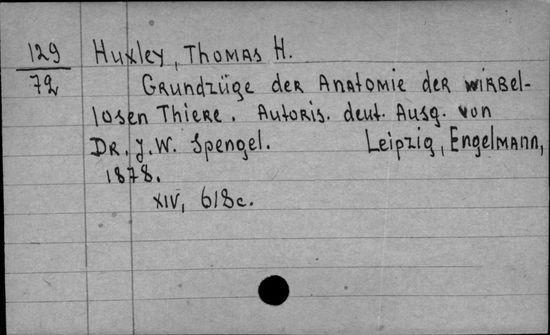 129 Huxley, Thomas H.
72 Grundzüge der Anatomie der wirbel-
losen Thiere. Autoris. deut. Ausg. von
Dr. J. W. Spengel. Leipzig, Engelmann,
1878.
XIV, 618c.